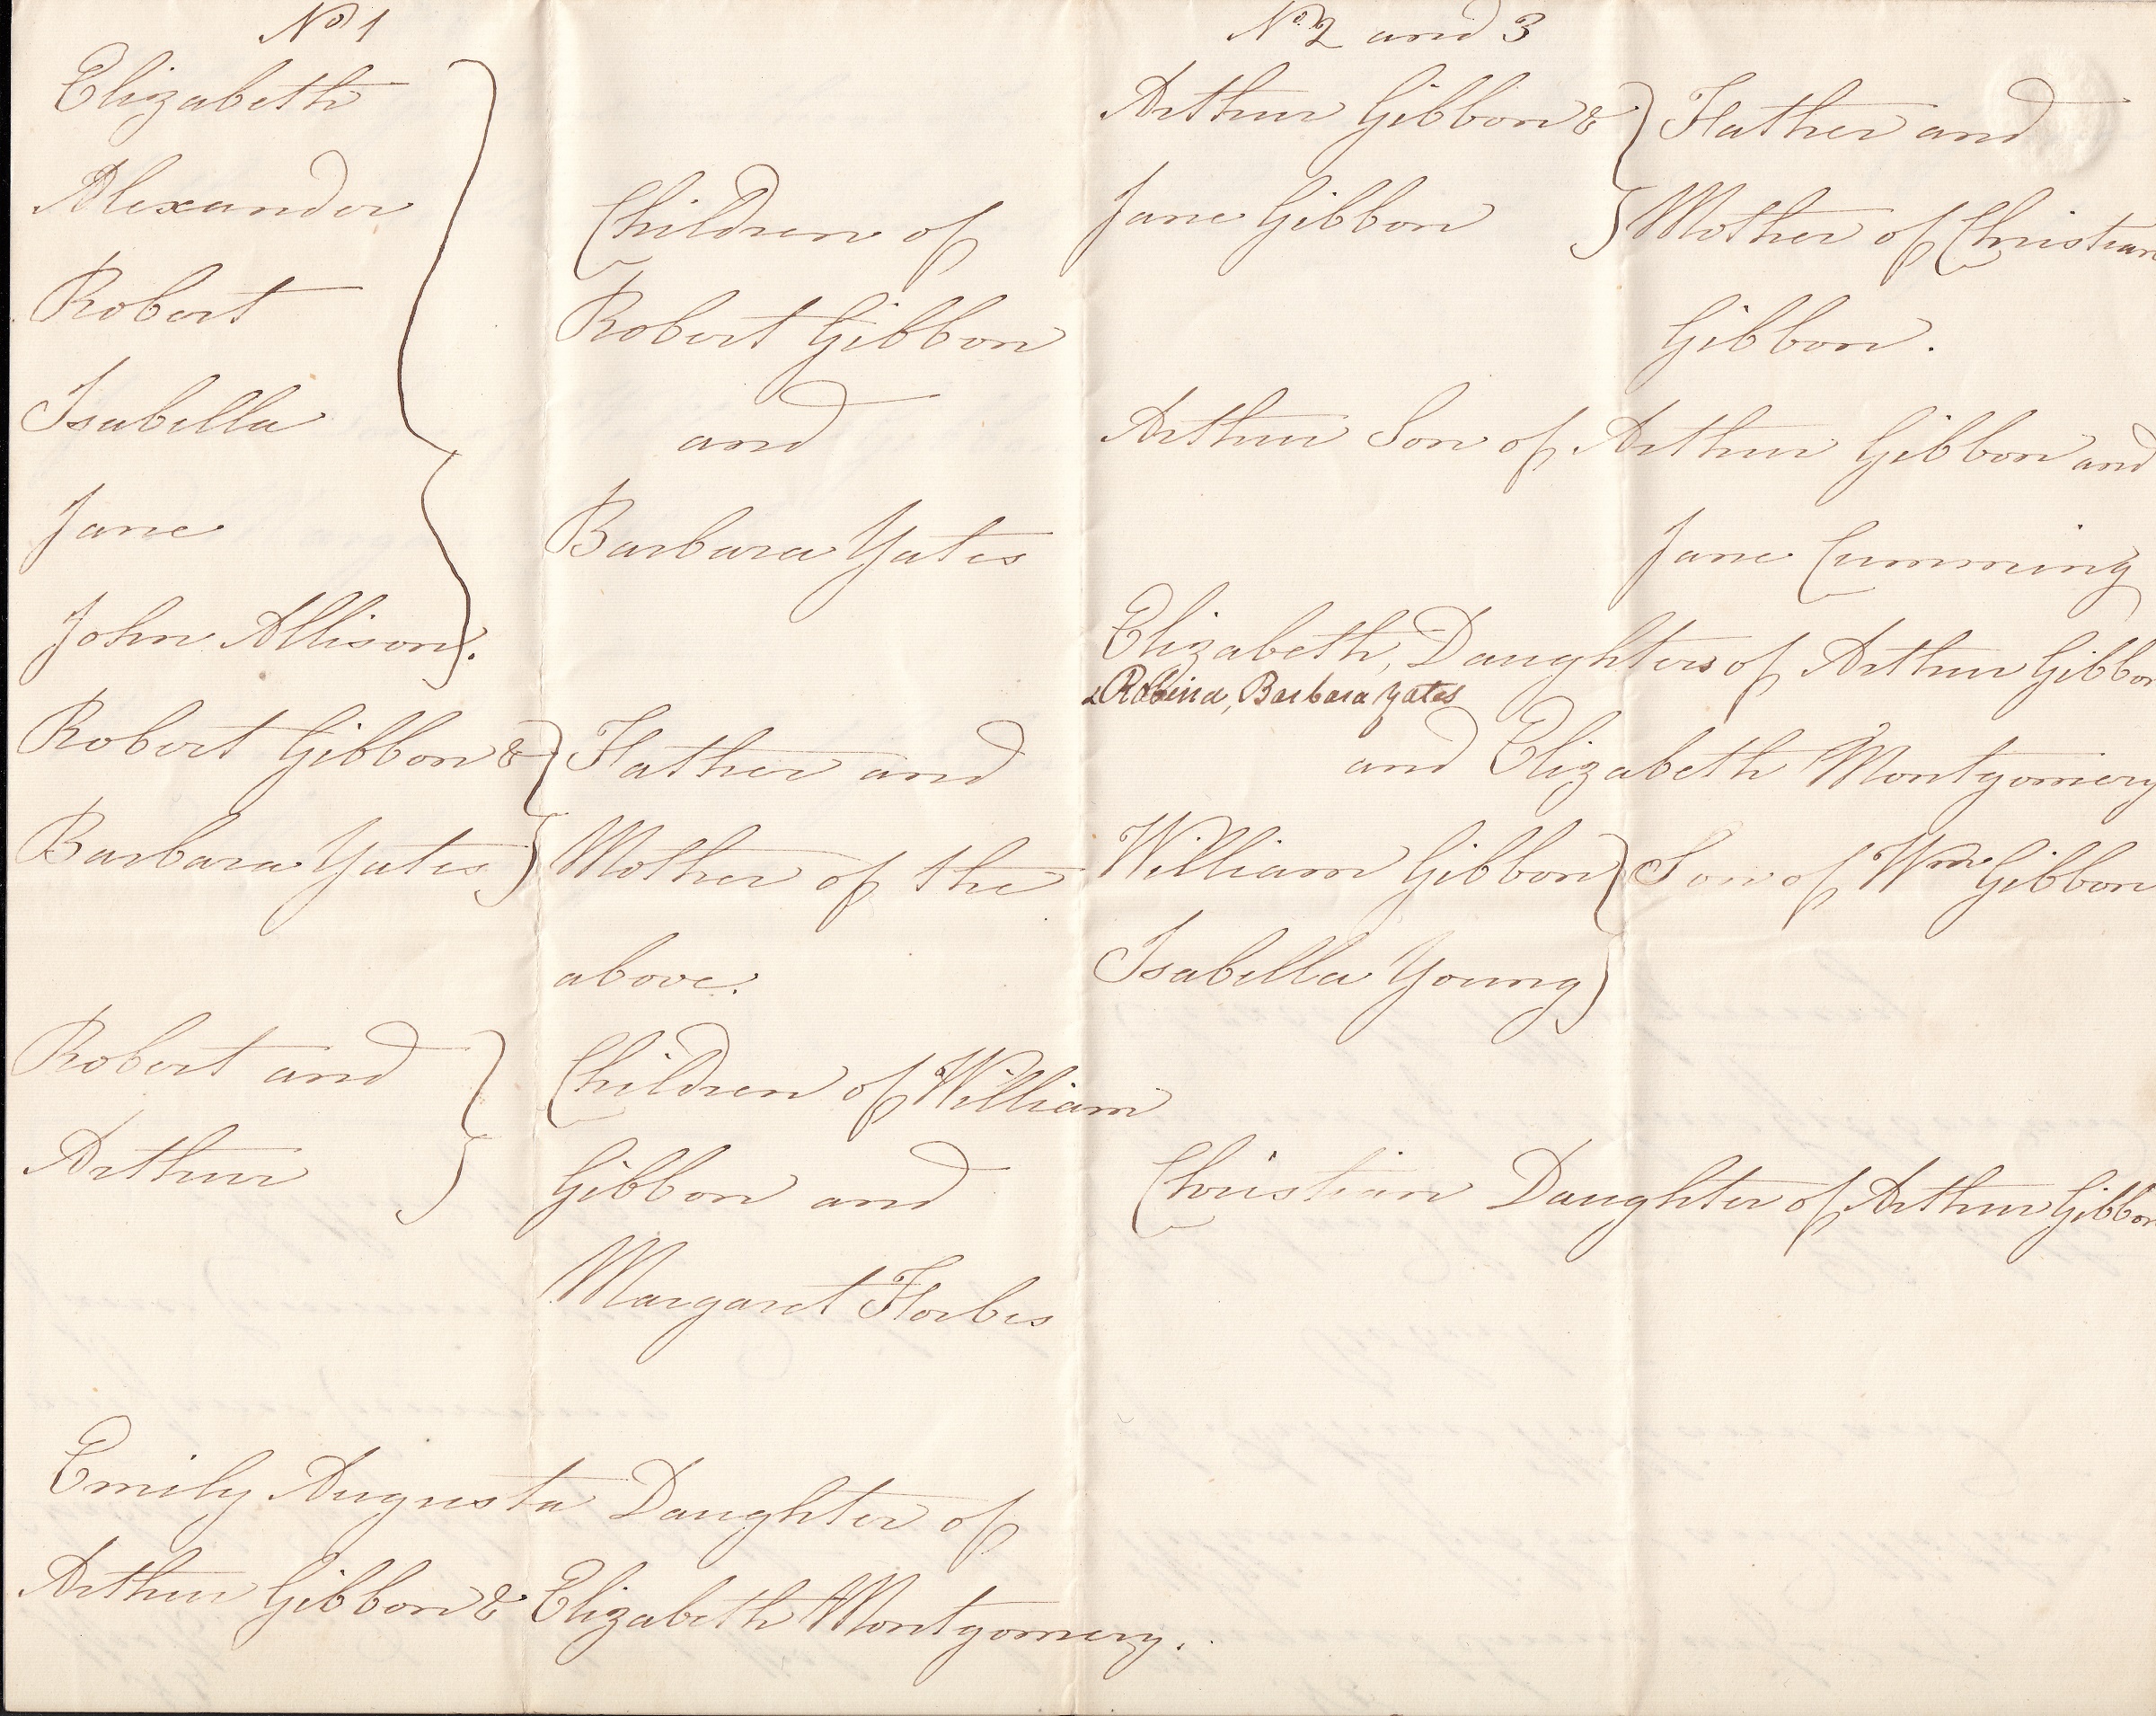 No 1
Elizabeth
Alexander
Robert
Isabella
Jane
John Allison.
Children of
Robert Gibbon
and
Barbara Yates
Robert Gibbon &
Barbara Yates
Father and
Mother of the
above.
Robert and
Arthur
Children of William
Gibbon and
Margaret Forbes
Emily Augusta Daughter of
Arthur Gibbon & Elizabeth Montgomery.
No 2 and 3
Arthur Gibbon &
Jane Gibbon
Father and
Mother of Christian
Gibbon.
Arthur Son of Arthur Gibbon and
Jane Cumming
Elizabeth, Daughters of Arthur Gibbon
& Robina, Barbara Yates
and Elizabeth Montgomery
William Gibbon
Isabella Young
Son of Wm Gibbon
Christian Daughter of Arthur Gibbon